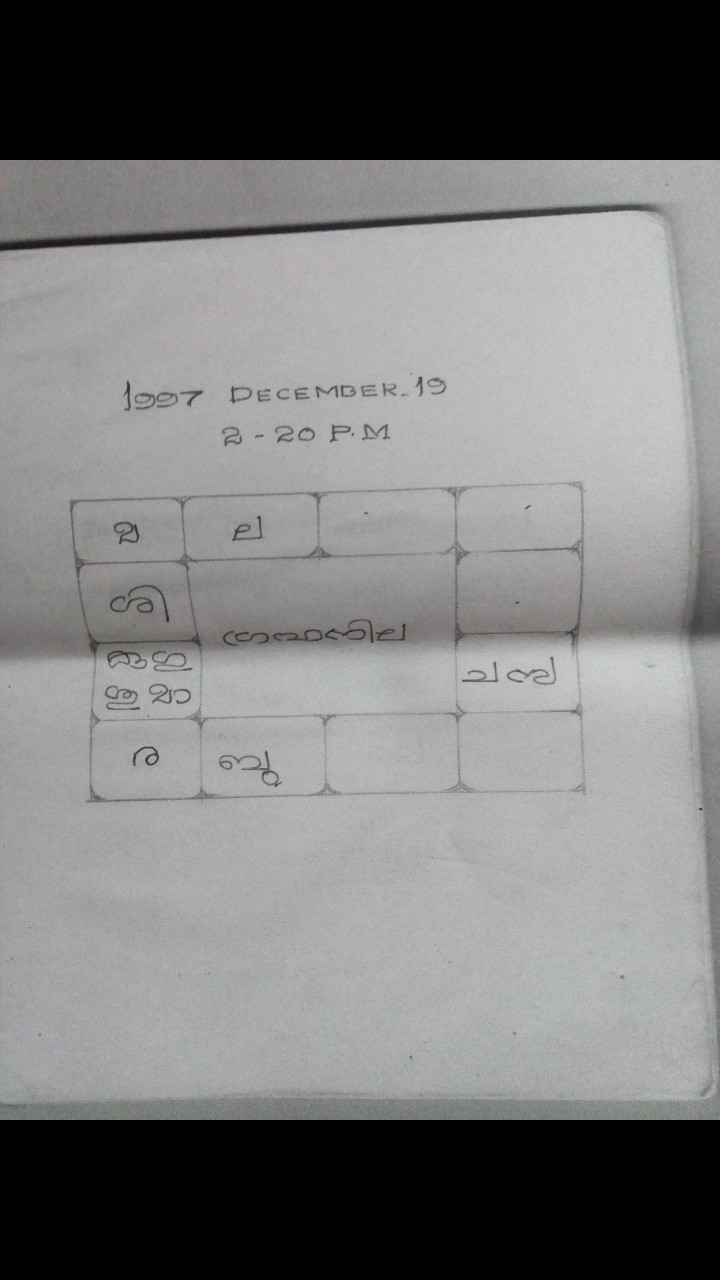 1997 DECEMBER-19
2-20 P.M
മ ല
ശി
ഗ്രഹനില
കു ഗു
ശു മാ
ച സ
ര ബു